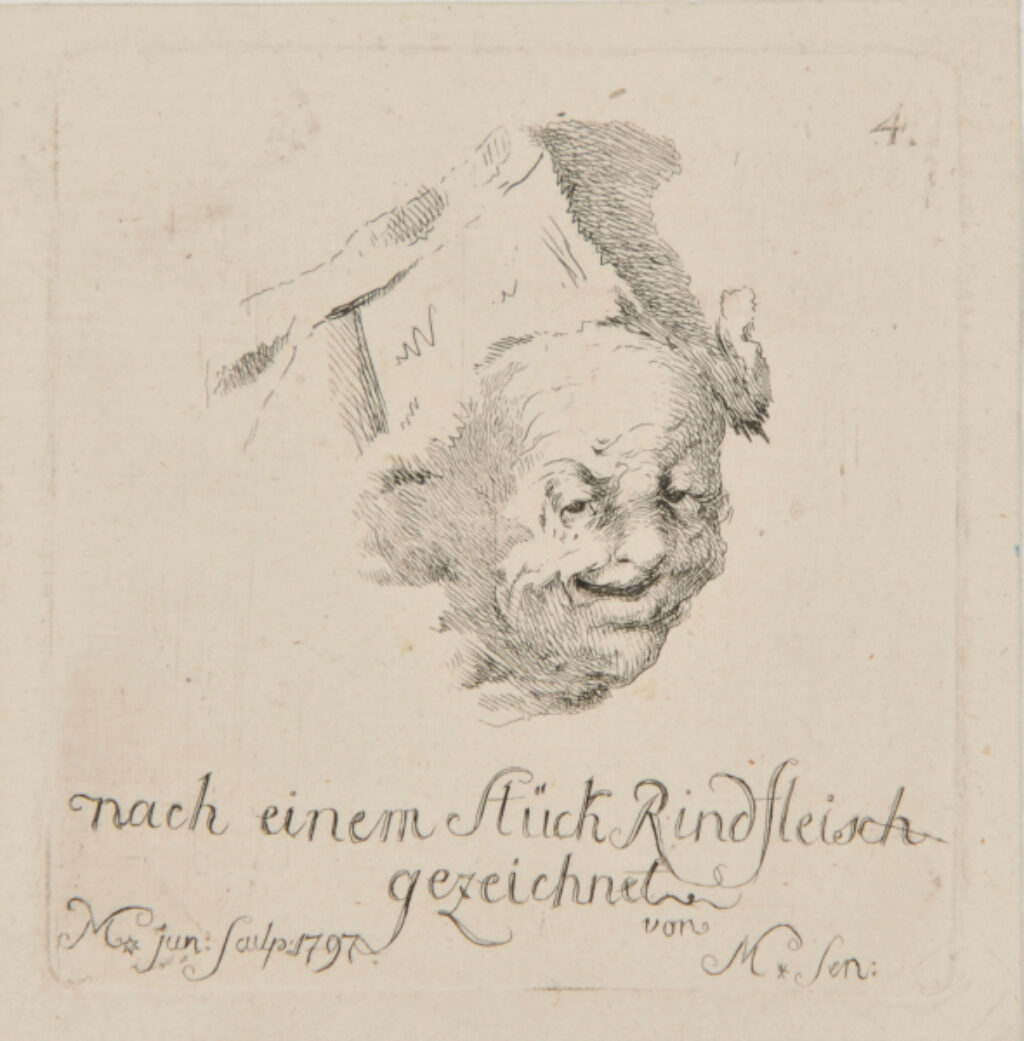 4.
nach einem Stück Rindfleisch
gezeichnet
von
M* jun: sculp: 1797.
M* sen: